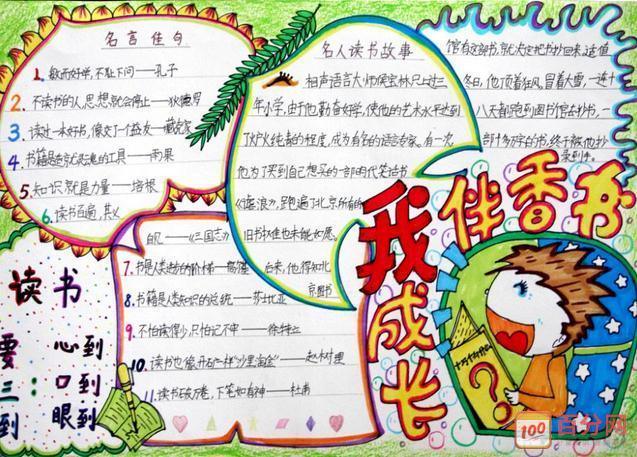 名言佳句
1. 敏而好学,不耻下问——孔子
2. 不读书的人,思想就会停止——狄德罗
3. 读过一本好书,像交了一个益友——臧克家
4. 书籍是造就灵魂的工具——雨果
5. 知识就是力量——培根
6. 读书百遍,其义
自见——《三国志》
7. 书是人类进步的阶梯——高尔基
8. 书籍是人类知识的总统——莎士比亚
9. 不怕读得少,只怕记不牢——徐特立
10. 读书也像开矿一样"沙里淘金"——赵树理
11. 读书破万卷,下笔如有神——杜甫
名人读书故事
相声语言大师侯宝林只上过三
年小学,由于他勤奋好学,使他的艺术水平达到
了炉火纯青的程度,成为有名的语言专家。有一次
他为了买到自己想买的一部明代笑话书
《谑浪》,跑遍了北京所有的
旧书摊也未能如愿。
后来,他得知北
京图书
馆有这部书,就决定把书抄回来,适值
冬日,他顶着狂风,冒着大雪,一连十
八天都跑到图书馆去抄书,一
部十多万字的书,终于被他抄
录到手。
书香伴
我成长
读书
要 心到
三:口到
到 眼到
??
100 百分网